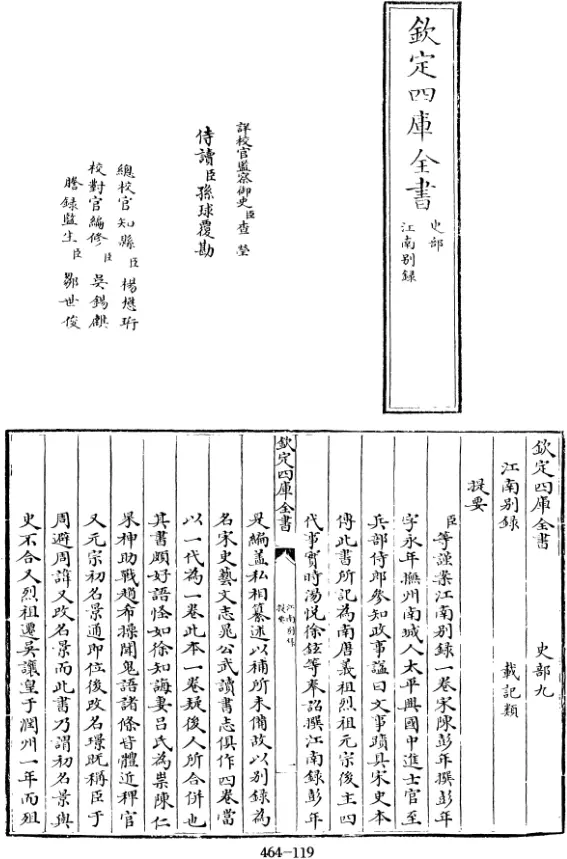 欽定四庫全書
史部
江南别録
詳校官監察御史臣查瑩
侍讀臣孫球覆勘
總校官知縣臣楊懋珩
校對官編修臣吳錫麒
謄録監生臣鄒世俊
欽定四庫全書
史部九
江南别録
載記類
提要
臣等謹案江南别録一卷宋陳彭年撰彭年
字永年撫州南城人太平興國中進士官至
兵部侍郎參知政事諡曰文事蹟具宋史本
傳此書所記為南唐義祖烈祖元宗後主四
代事實時湯悦徐鉉等奉詔撰江南録彭年
欽定四庫全書
江南别録
提要
一
是編盖私相纂述以補所未備故以别録為
名宋史藝文志晁公武讀書志俱作四卷當
以一代為一卷此本一卷疑後人所合併也
其書頗好語怪如徐知誨妻吕氏為祟陳仁
杲神助戰趙希操聞鬼語諸條皆體近稗官
又元宗初名景通即位後改名璟既稱臣于
周避周諱又改名景而此書乃謂初名景與
史不合又烈祖遷吳讓皇于潤州一年而殂
464-119